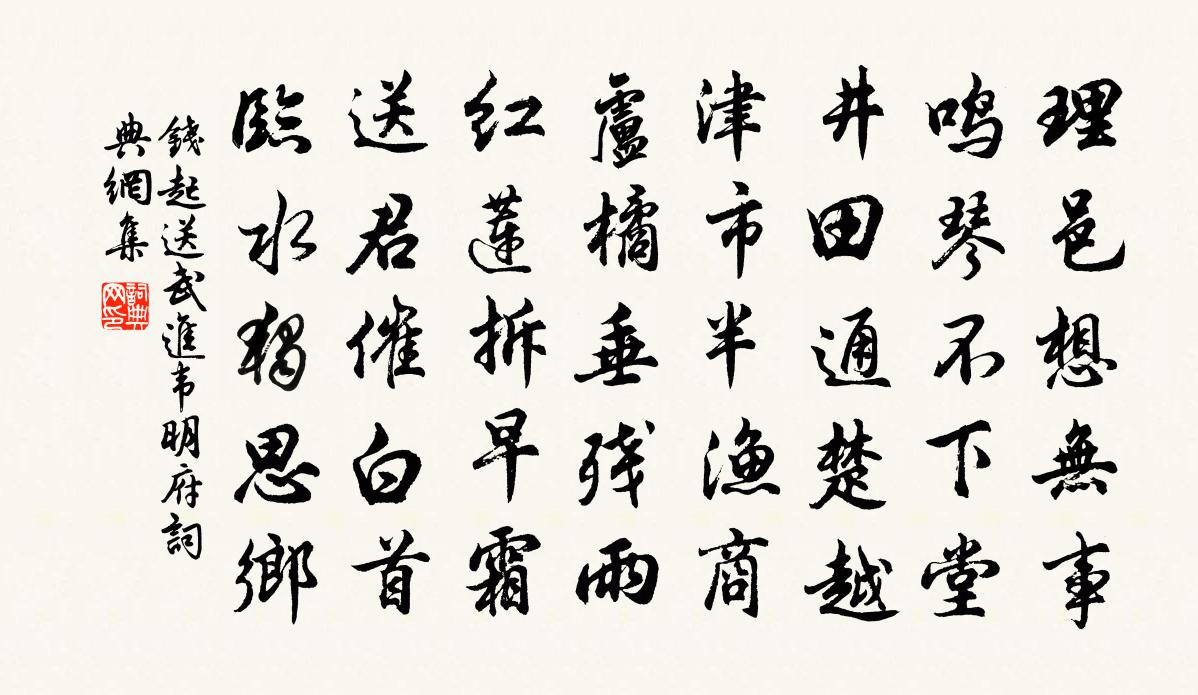 理邑想無事
鳴琴不下堂
井田通楚越
津市半漁商
盧橘垂殘雨
紅蓮拆早霜
送君催白首
臨水獨思鄉
錢起送武進韦明府詞
典網集
詞典
网印